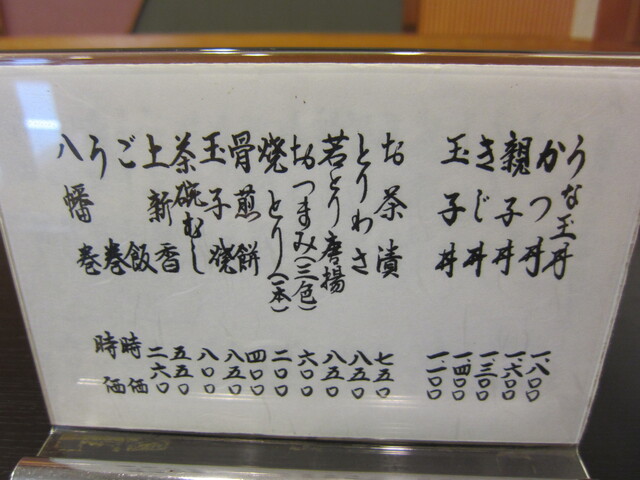 うな玉丼 一、八〇〇
かつ丼 一、六〇〇
親子丼 一、三〇〇
きじ丼 一、四〇〇
玉子丼 一、一〇〇
お茶漬 七五〇
とりわさ 八五〇
若とり唐揚 八五〇
おつまみ(三色) 六〇〇
焼とり(一本) 二〇〇
骨煎餅 四〇〇
玉子焼 八五〇
茶碗むし 八〇〇
上新香 五五〇
ご飯 二六〇
う巻 時価
八幡巻 時価